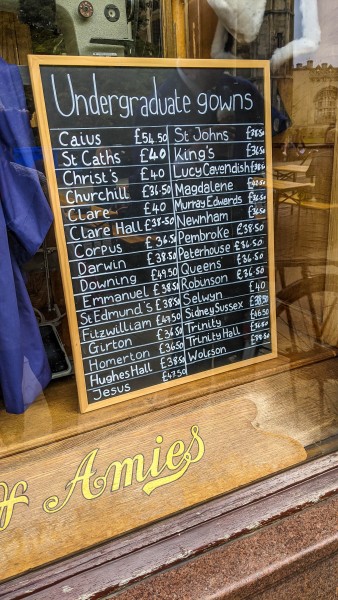 Undergraduate gowns
Caius £54.50
St Caths £40
Christ's £40
Churchill £36.50
Clare £40
Clare Hall £38.50
Corpus £36.50
Darwin £38.50
Downing £49.50
Emmanuel £38.50
St Edmund's £38.50
Fitzwilliam £49.50
Girton £36.50
Homerton £36.50
Hughes Hall £38.50
Jesus £47.50
St Johns £38.50
King's £36.50
Lucy Cavendish £38.50
Magdalene
Murray Edwards £36.50
Newnham £36.50
Pembroke £38.50
Peterhouse £36.50
Queens' £36.50
Robinson £36.50
Selwyn £40
Sidney Sussex £38.50
Trinity £46.50
Trinity Hall £36.50
Wolfson
& Amies